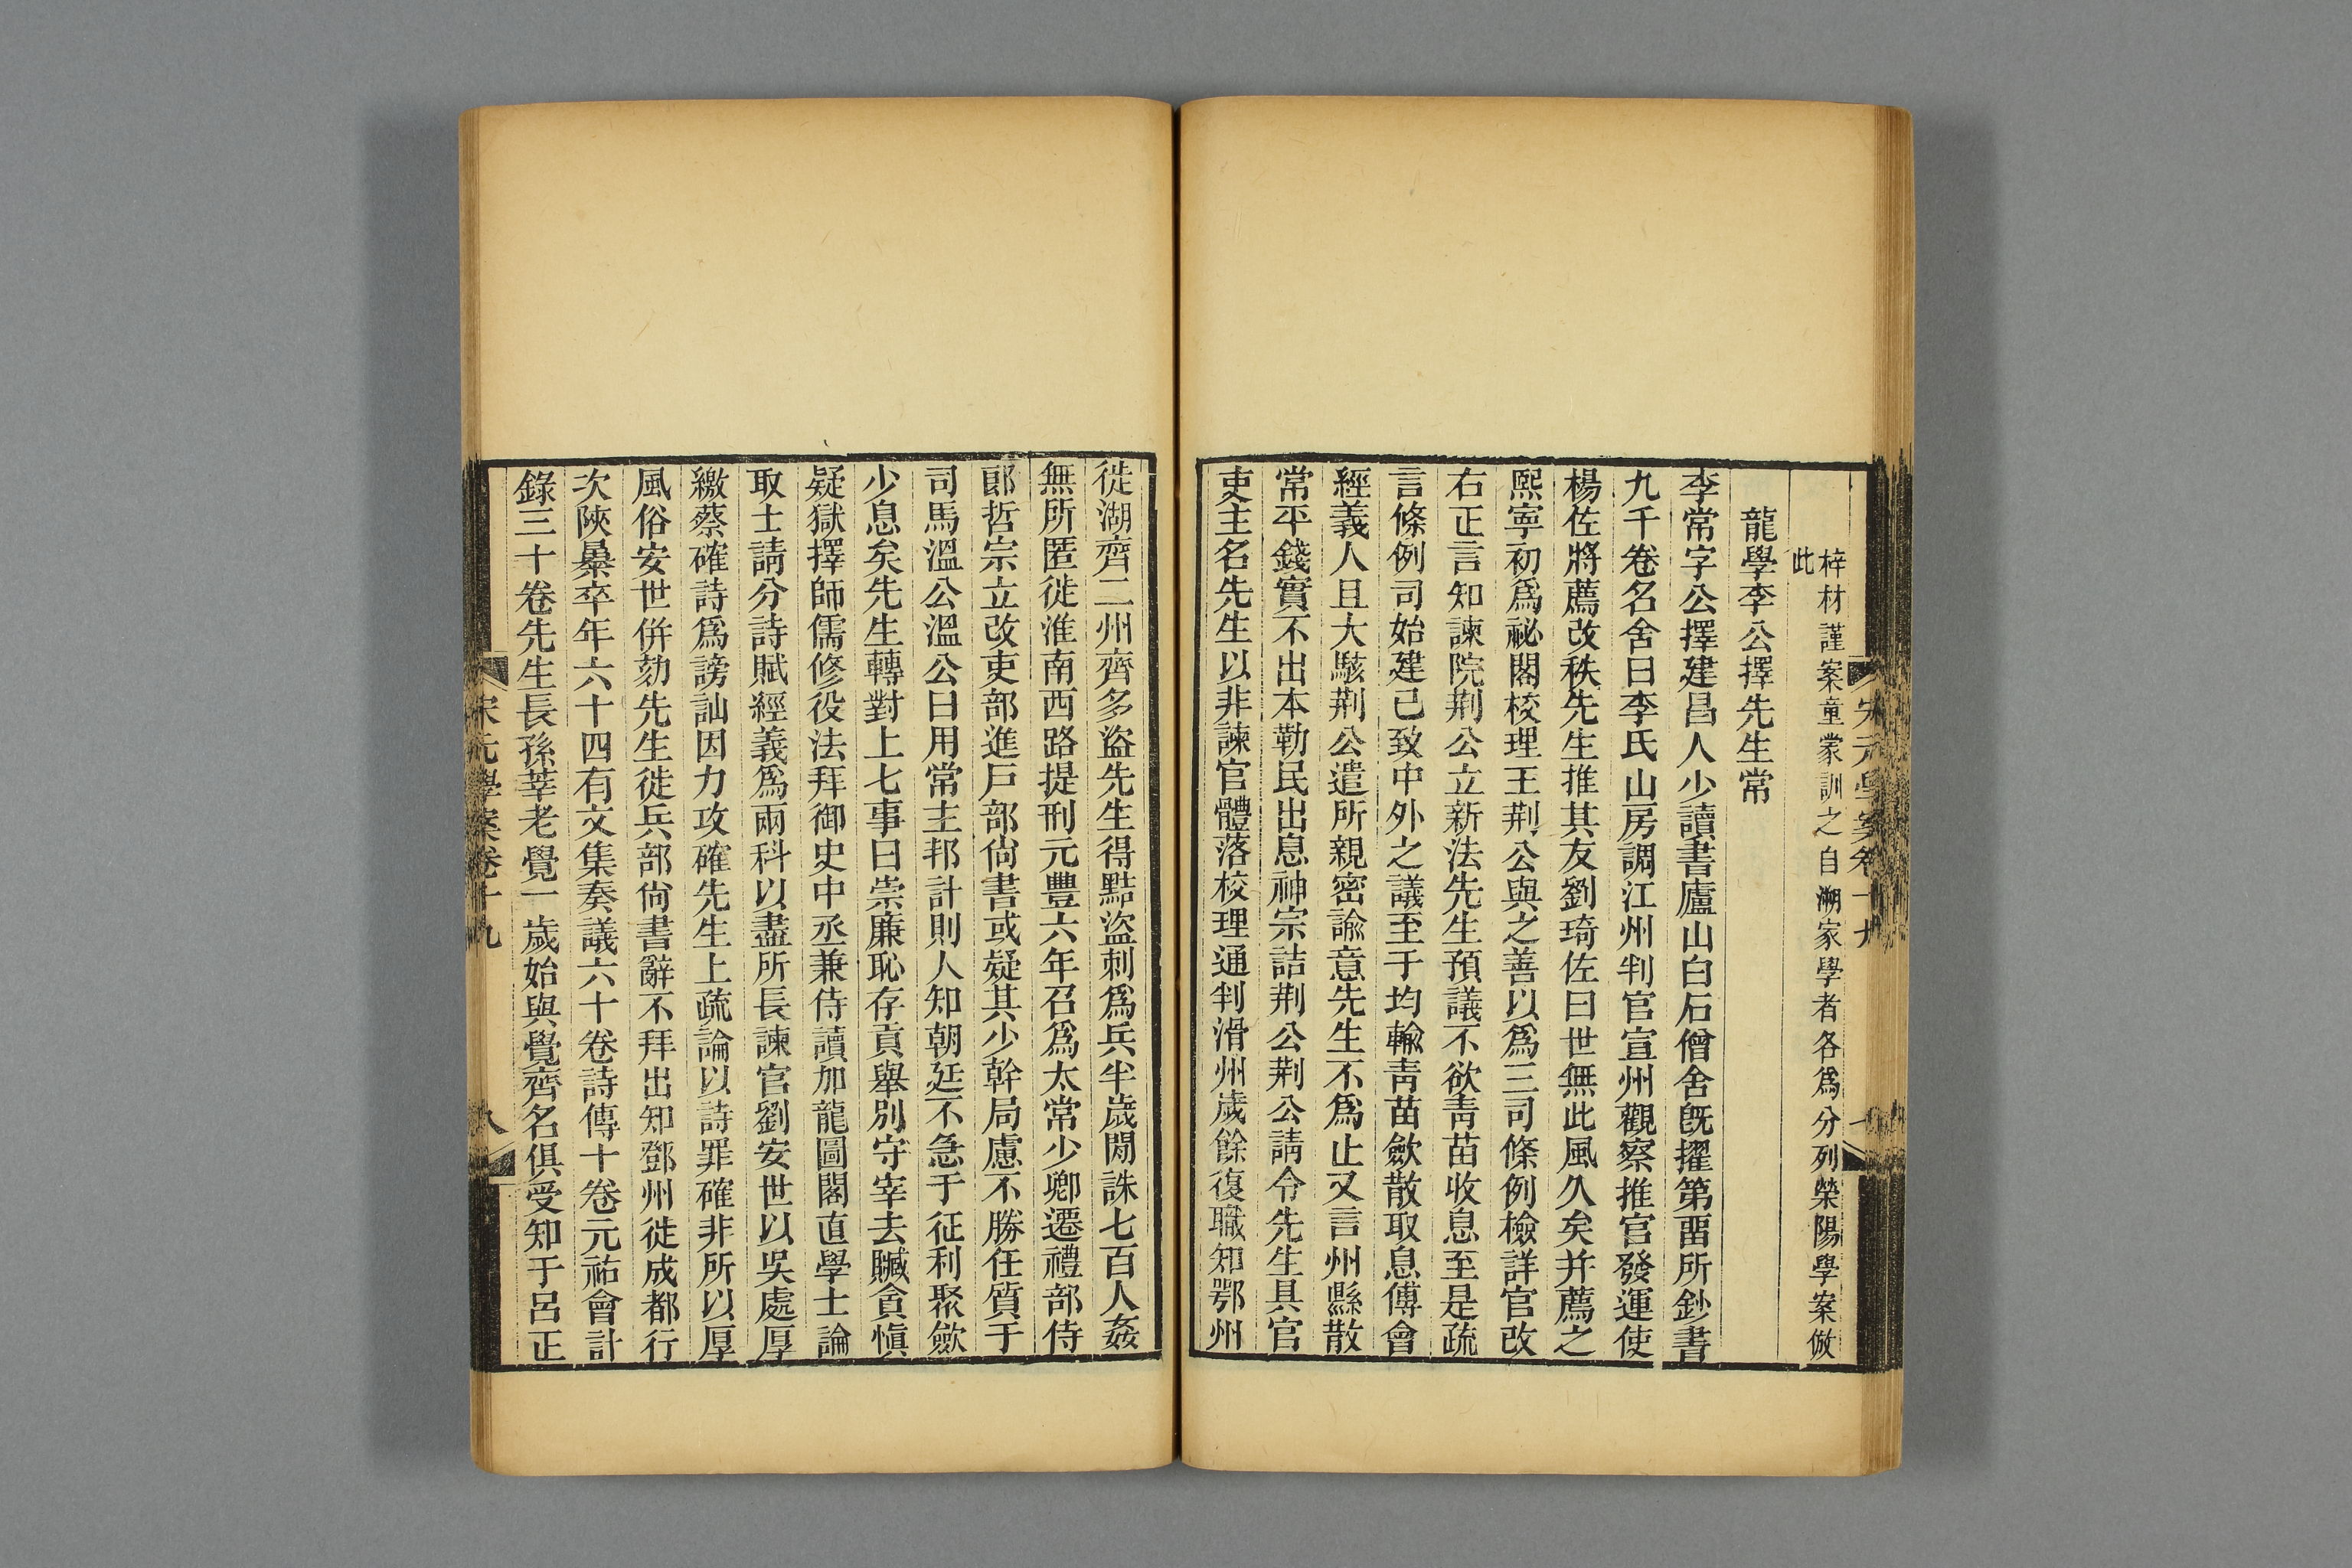 梓材謹案童蒙訓之自溯家學者各爲分列滎陽學案倣
此
龍學李公擇先生常
李常字公擇建昌人少讀書廬山白石僧舍旣擢第畱所鈔書
九千卷名舍曰李氏山房調江州判官宣州觀察推官發運使
楊佐將薦改秩先生推其友劉琦佐曰世無此風久矣幷薦之
熙寧初爲祕閣校理王荆公與之善以爲三司條例檢詳官改
右正言知諫院荆公立新法先生預議不欲靑苗收息至是疏
言條例司始建已致中外之議至于均輸靑苗斂散取息傅會
經義人且大駭荆公遣所親密諭意先生不爲止又言州縣散
常平錢實不出本勒民出息神宗詰荆公荆公請令先生具官
吏主名先生以非諫官體落校理通判滑州歲餘復職知鄂州
徙湖齊二州齊多盜先生得黠盜刺爲兵半歲閒誅七百人姦
無所匿徙淮南西路提刑元豐六年召爲太常少卿遷禮部侍
郎哲宗立改吏部進戶部尙書或疑其少幹局慮不勝任質于
司馬溫公溫公曰用常主邦計則人知朝廷不急于征利聚斂
少息矣先生轉對上七事曰崇廉恥存貢舉別守宰去贓貪愼
疑獄擇師儒修役法拜御史中丞兼侍讀加龍圖閣直學士論
取士請分詩賦經義爲兩科以盡所長諫官劉安世以吳處厚
繳蔡確詩爲謗訕因力攻確先生上疏論以詩罪確非所以厚
風俗安世併劾先生徙兵部尙書辭不拜出知鄧州徙成都行
次陝暴卒年六十四有文集奏議六十卷詩傳十卷元祐會計
錄三十卷先生長孫莘老覺一歲始與覺齊名俱受知于呂正
宋元學案卷十九
八